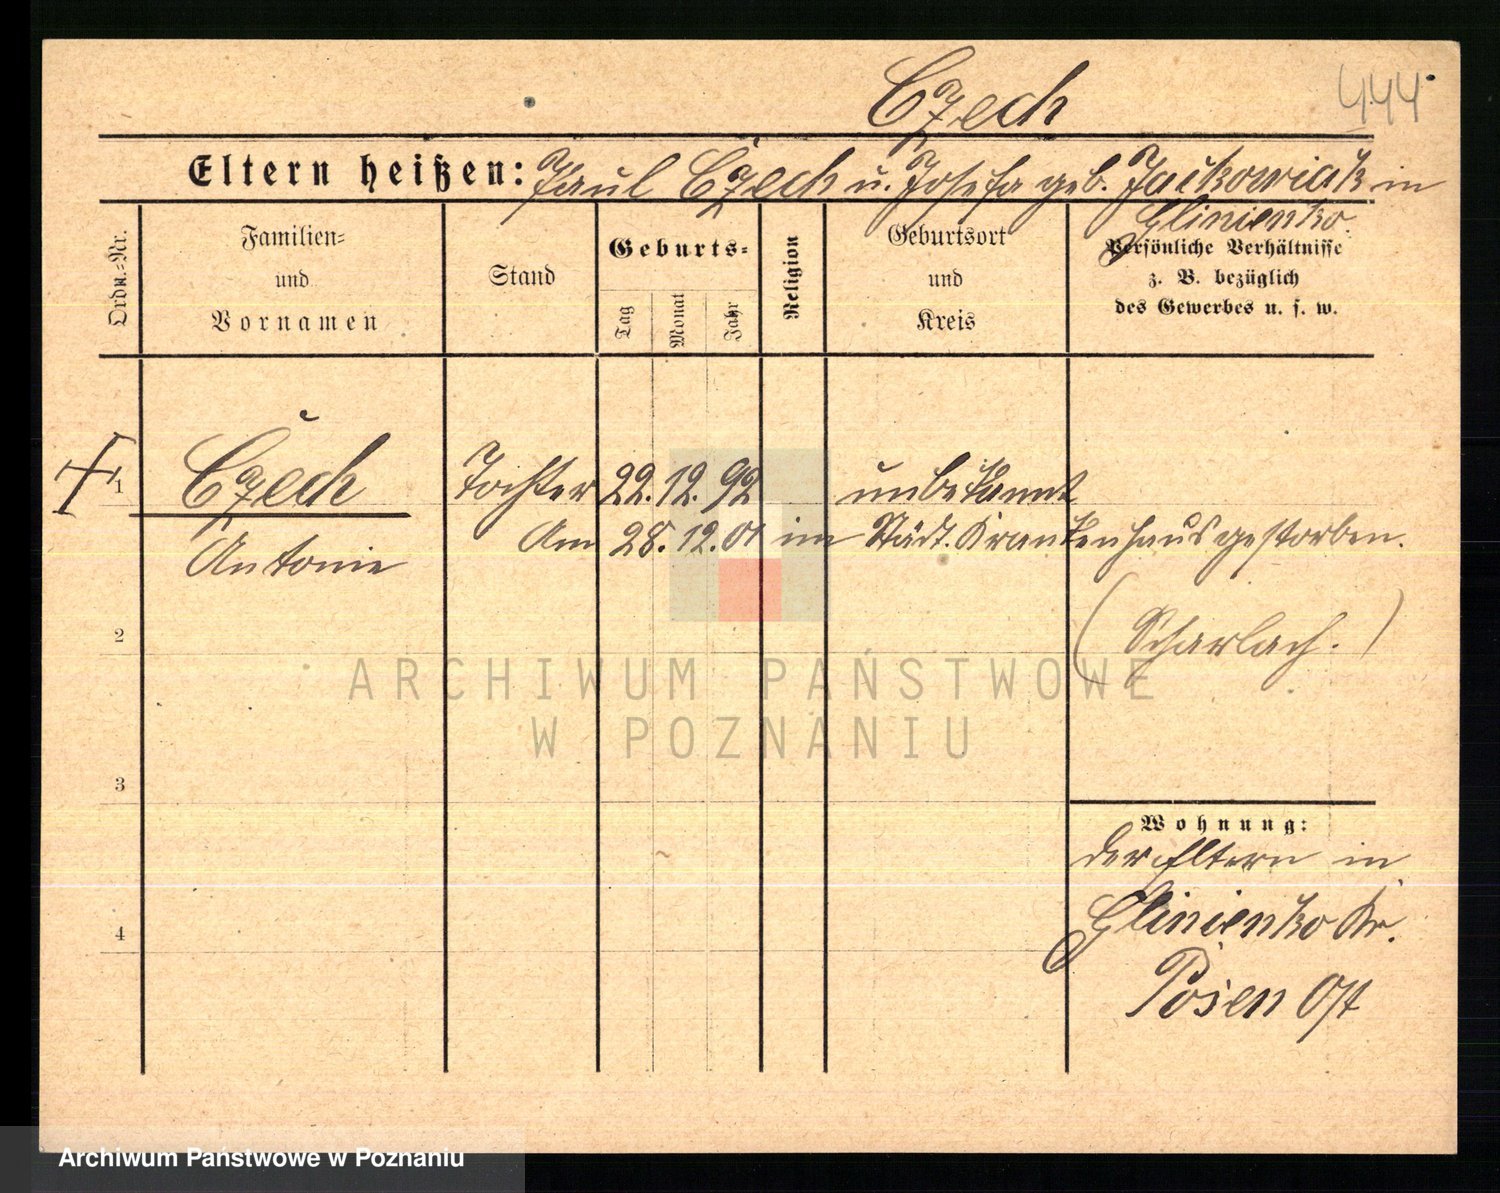 Czech
444
Eltern heißen: Paul Czech u. Josefa geb. Jaikowiak in
Glinienko.
Ordn.-Nr.
Familien-
und
Vornamen
Stand
Geburts-
Tag
Monat
Jahr
Religion
Geburtsort
und
Kreis
Persönliche Verhältnisse
z. B. bezüglich
des Gewerbes u. s. w.
1 Czech Tochter 22. 12. 92 unbekannt
Antonie Am 28. 12. 01 im Städt. Krankenhaus gestorben.
2
(Scharlach.)
ARCHIWUM PAŃSTWOWE
W POZNANIU
3
Wohnung:
der Eltern in
Glinienko Kr.
4
Posen Ost
Archiwum Państwowe w Poznaniu